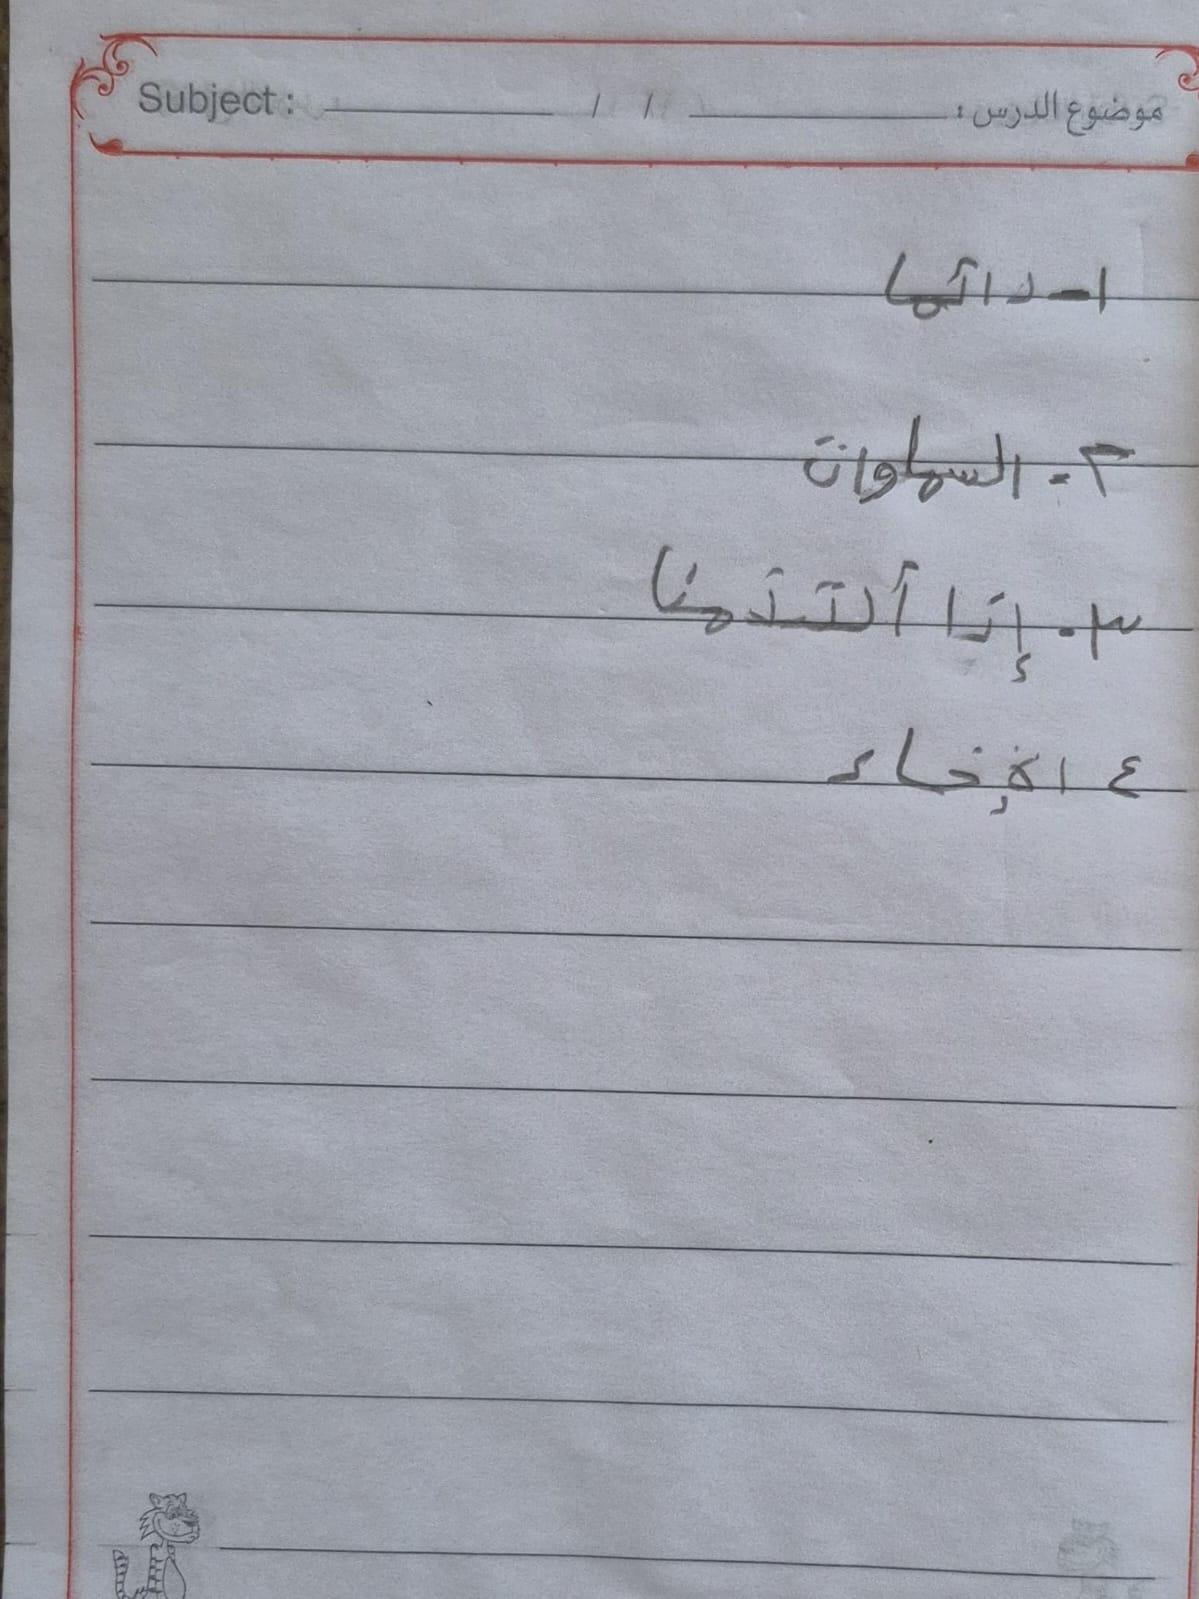 Subject : / / موضوع الدرس :
١- دائما
٢- السماوات
٣-
٤ الإخاء